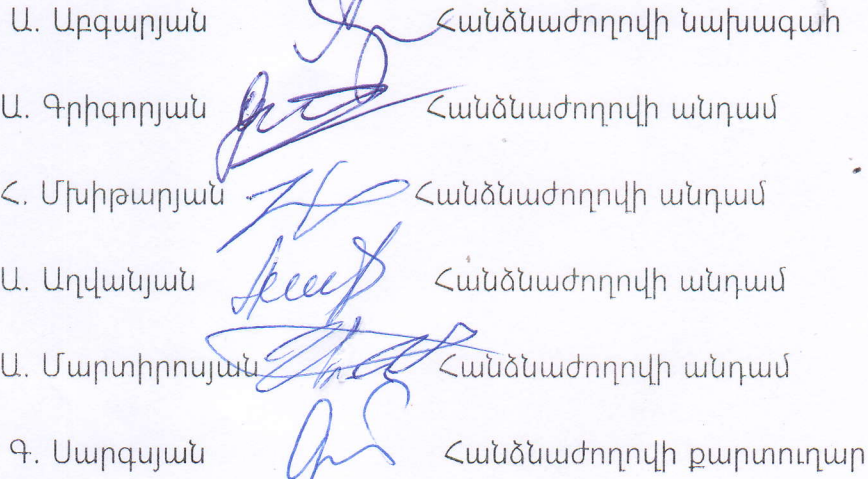 Ա. Աբգարյան Հանձնաժողովի նախագահ
Ա. Գրիգորյան Հանձնաժողովի անդամ
Հ. Մխիթարյան Հանձնաժողովի անդամ
Ա. Աղվանյան Հանձնաժողովի անդամ
Ա. Մարտիրոսյան Հանձնաժողովի անդամ
Գ. Սարգսյան Հանձնաժողովի քարտուղար